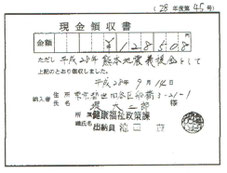 (28年度第45号)
現金領収書
金額 ¥128508
ただし 平成28年熊本地震義援金として
上記のとおり領収しました。
平成28年9月14日
住所 東京都世田谷区 5-21-1
納入者
氏名 様
所属 健康福祉政策課
職氏名 出納員 滝口